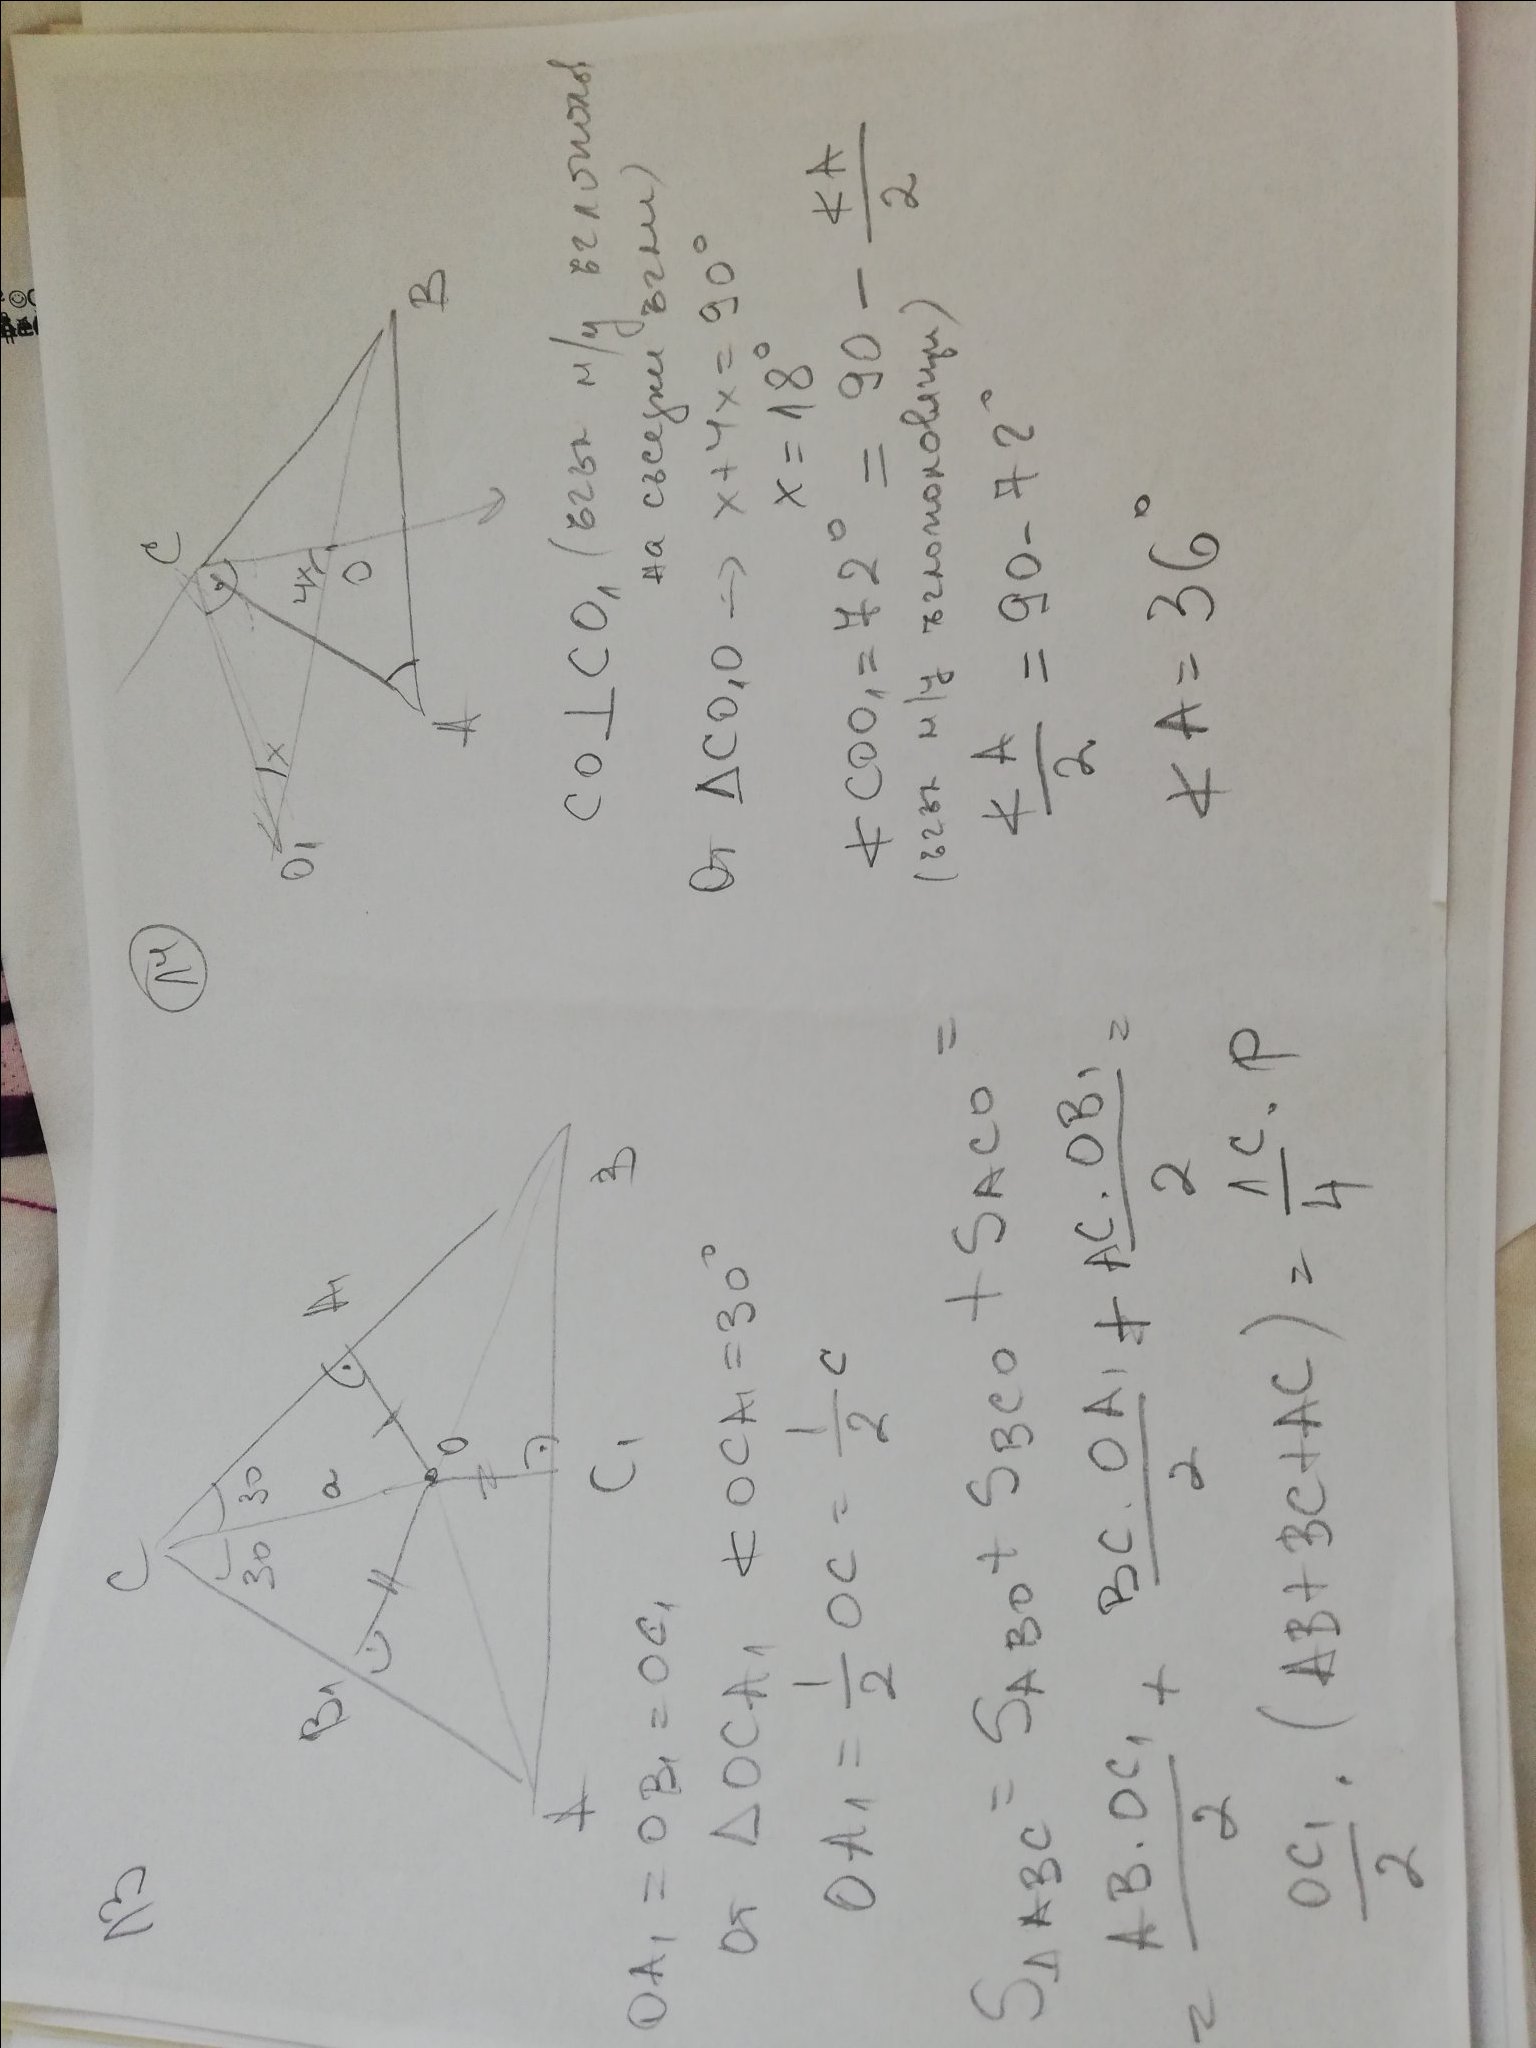 13
C
30
30
a
B1
A1
O
A
C1
B
OA1 = OB1 = OC1
От △OCA1 ∢OCA1 = 30°
OA1 = 1/2 OC = 1/2 c
S△ABC = SABO + SBCO + SACO =
= AB.OC1/2 + BC.OA1/2 + AC.OB1/2 =
OC1/2 . (AB+BC+AC) = 1c/4 . P
14
C
O1
x
4x
O
A
B
CO ⊥ CO1 (ъгъл м/у ъглополов
на съседни ъгли)
От △CO1O → x+4x = 90°
x = 18°
∢COO1 = 72° = 90 - ∢A/2
(ъгъл м/у ъглополовящи)
∢A/2 = 90 - 72°
∢A = 36°